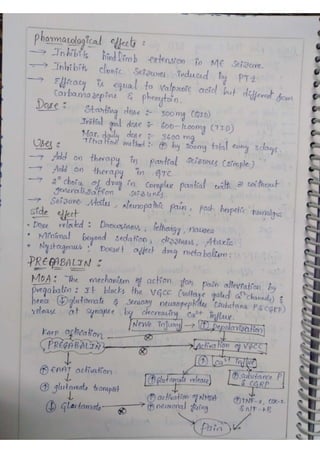 Pharmacological effects :
→ Inhibits hindlimb extension in ME Seizure.
→ Inhibits clonic Seizures induced by PTZ
→ Efficacy is equal to valproic acid but different from
Carbamazepine & phenytoin.
Dose :
Starting dose :- 300mg (QID)
Initial goal dose :- 600-1200mg (TID)
Max. daily dose :- 3600 mg
Titration method :- ↑ by 300mg total every 3days.
Uses :
→ Add on therapy in partial seizures (simple)
→ Add on therapy in GTC
→ 2nd choice of drug in complex partial with & without
generalization seizures
→ Seizure States, Neuropathic pain, post herpetic neuralgia
Side effect
• Dose related : Drowsiness, lethargy, nausea
• Minimal beyond sedation, dizziness, Ataxia.
• Nystagmus. Doesn't affect drug metabolism.
PREGABALIN :
MOA : The mechanism of action for pain alleviation by
pregabalin : It blocks the VGCC (voltage gated Ca2+ channels) &
hence ↓ glutamate & sensory neuropeptides (substance P & CGRP)
release at synapse by decreasing Ca2+ influx.
Nerve Injury → ↑ Depolarization
KATP activation
PREGABALIN
Activation of VGCC
↑ EAAT activation
↑ Ca2+ Influx
↑ glutamate transport
↑ Glutamate release
↑ Substance P
& CGRP
↓ Glutamate
↑ activation of NMDA
↑ neuronal firing
↑ TNF-α, COX-2
& NF-κB
Pain